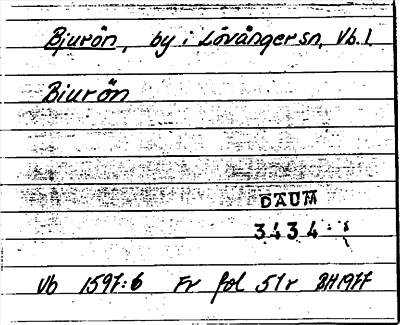 Bjurön, by i Lövånger sn, Vb. l.
Biurön
DAUM
3434
Vb 1597:6 Fr fol 51r BH1977